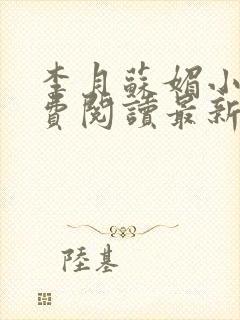 李月蘇媚小
費閱讀最新
陸基